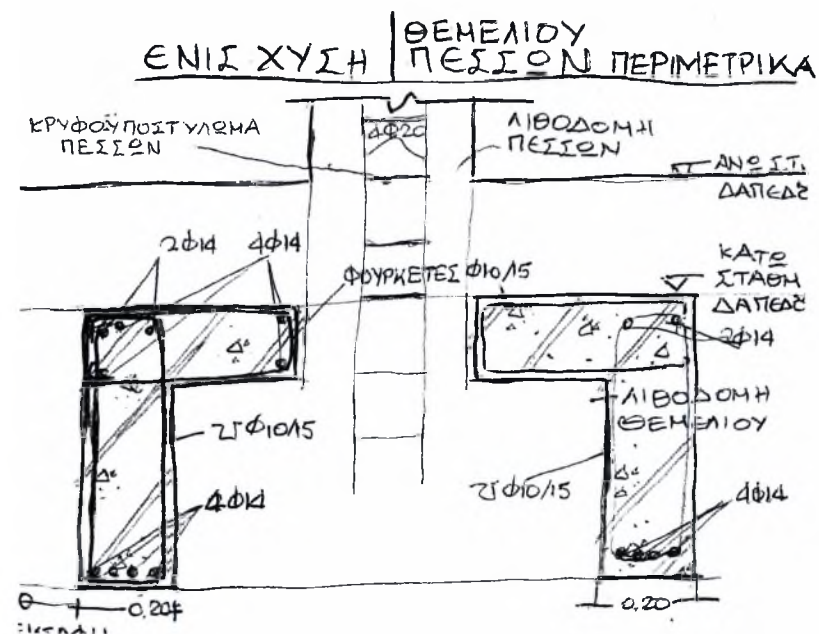 ΕΝΙΣΧΥΣΗ
ΘΕΜΕΛΙΟΥ
ΠΕΣΣΩΝ ΠΕΡΙΜΕΤΡΙΚΑ
ΚΡΥΦΟΫΠΟΣΤΥΛΩΜΑ
ΠΕΣΣΩΝ
4Φ20
ΛΙΘΟΔΟΜΗ
ΠΕΣΣΩΝ
ΑΝΩ ΣΤ.
ΔΑΠΕΔȢ
2Φ14
4Φ14
ΦΟΥΡΚΕΤΕΣ Φ10/15
ΚΑΤΩ
ΣΤΑΘΜ
ΔΑΠΕΔȢ
2Φ14
ΛΙΘΟΔΟΜΗ
ΘΕΜΕΛΙΟΥ
Φ10/15
Φ10/15
4Φ14
4Φ14
0.20
0.20